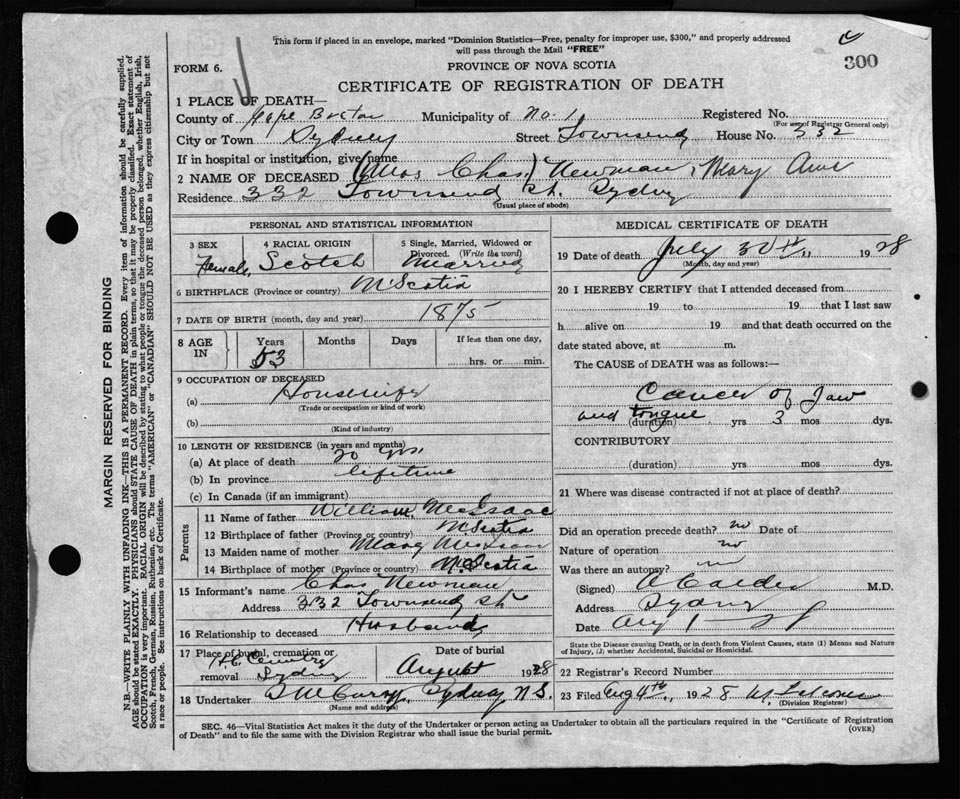 This form if placed in an envelope, marked "Dominion Statistics—Free, penalty for improper use, $300," and properly addressed
will pass through the Mail "FREE"
300
FORM 6.
PROVINCE OF NOVA SCOTIA
CERTIFICATE OF REGISTRATION OF DEATH
1 PLACE OF DEATH—
County of Cape Breton Municipality of No. 1 Registered No.
(For use of Registrar General only)
City or Town Sydney Street Townsend House No. 332
If in hospital or institution, give name
2 NAME OF DECEASED (Mrs Chas.) Newman, Mary Ann
Residence 332 Townsend St. Sydney
(Usual place of abode)
PERSONAL AND STATISTICAL INFORMATION
3 SEX 4 RACIAL ORIGIN 5 Single, Married, Widowed or
Divorced. (Write the word)
Female Scotch Married
6 BIRTHPLACE (Province or country) N. Scotia
7 DATE OF BIRTH (month, day and year) 1875
8 AGE IN Years Months Days If less than one day,
53 hrs. or min.
9 OCCUPATION OF DECEASED
(a) Housewife
(Trade or occupation or kind of work)
(b)
(Kind of industry)
10 LENGTH OF RESIDENCE (in years and months)
(a) At place of death 20 yrs.
(b) In province lifetime
(c) In Canada (if an immigrant)
Parents
11 Name of father William McIsaac
12 Birthplace of father (Province or country) N. Scotia
13 Maiden name of mother Mary
14 Birthplace of mother (Province or country) N. Scotia
15 Informant's name Chas Newman
Address 332 Townsend St
16 Relationship to deceased Husband
17 Place of burial, cremation or Date of burial
removal Sydney August 1928
18 Undertaker Sydney, N.S.
(Name and address)
MEDICAL CERTIFICATE OF DEATH
19 Date of death July 30th, 1928
(Month, day and year)
20 I HEREBY CERTIFY that I attended deceased from
19 to 19 that I last saw
h alive on 19 and that death occurred on the
date stated above, at m.
The CAUSE of DEATH was as follows:
Cancer of Jaw
and tongue (duration) yrs 3 mos dys.
CONTRIBUTORY
(duration) yrs mos dys.
21 Where was disease contracted if not at place of death?
Did an operation precede death? no Date of
Nature of operation no
Was there an autopsy? no
(Signed) M.D.
Address Sydney
Date Aug 1
State the Disease causing Death, or in death from Violent Causes, state (1) Means and Nature
of Injury, (2) whether Accidental, Suicidal or Homicidal.
22 Registrar's Record Number
23 Filed Aug 4th, 1928
(Division Registrar)
SEC. 46—Vital Statistics Act makes it the duty of the Undertaker or person acting as Undertaker to obtain all the particulars required in the "Certificate of Registration
of Death" and to file the same with the Division Registrar who shall issue the burial permit.
(OVER)
MARGIN RESERVED FOR BINDING
N.B.—WRITE PLAINLY WITH UNFADING INK—THIS IS A PERMANENT RECORD. Every item of information should be carefully supplied.
AGE should be stated EXACTLY. PHYSICIANS should STATE CAUSE OF DEATH in plain terms, so that it may be properly classified. Exact statement of
OCCUPATION is very important. RACIAL ORIGIN will be described by stating to what people or tongue the deceased person belonged, whether English, Irish,
Scotch, French, German, Russian, Ruthenian, etc. The terms "AMERICAN" or "CANADIAN" SHOULD NOT BE USED as they express citizenship but not
a race or people. See instructions on back of Certificate.